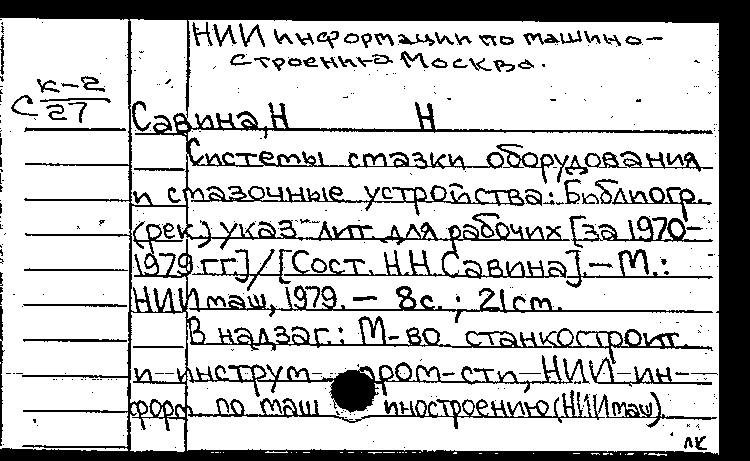 НИИ информации по машино-
строению. Москва.
С к-2/27
Савина, Н Н
Системы смазки оборудования
и смазочные устройства: Библиогр.
(рек.) указ лит. для рабочих [за 1970-
1979 гг.] / [Сост. Н.Н. Савина]. — М.:
НИИмаш, 1979. — 8с. ; 21см.
В надзаг.: М-во станкостроит.
и инструм пром-сти, НИИ ин-
форм по маш иностроению (НИИмаш).
лк